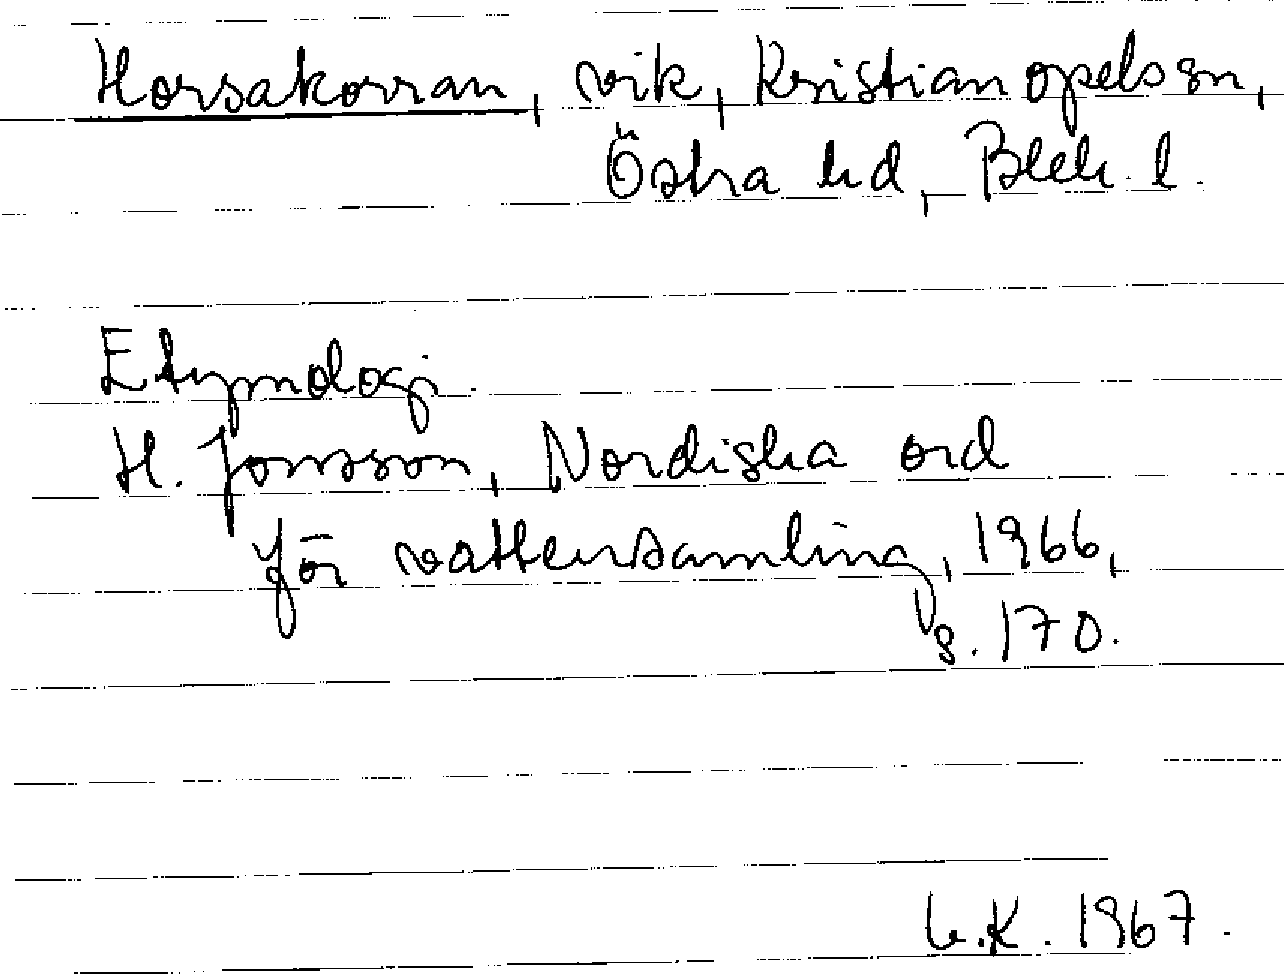 Horsakorran, vik, Kristianopels sn,
Östra hd, Blek. l.
Etymologi
H. Jonsson, Nordiska ord
för vattensamling, 1966,
s. 170.
L.K. 1967.